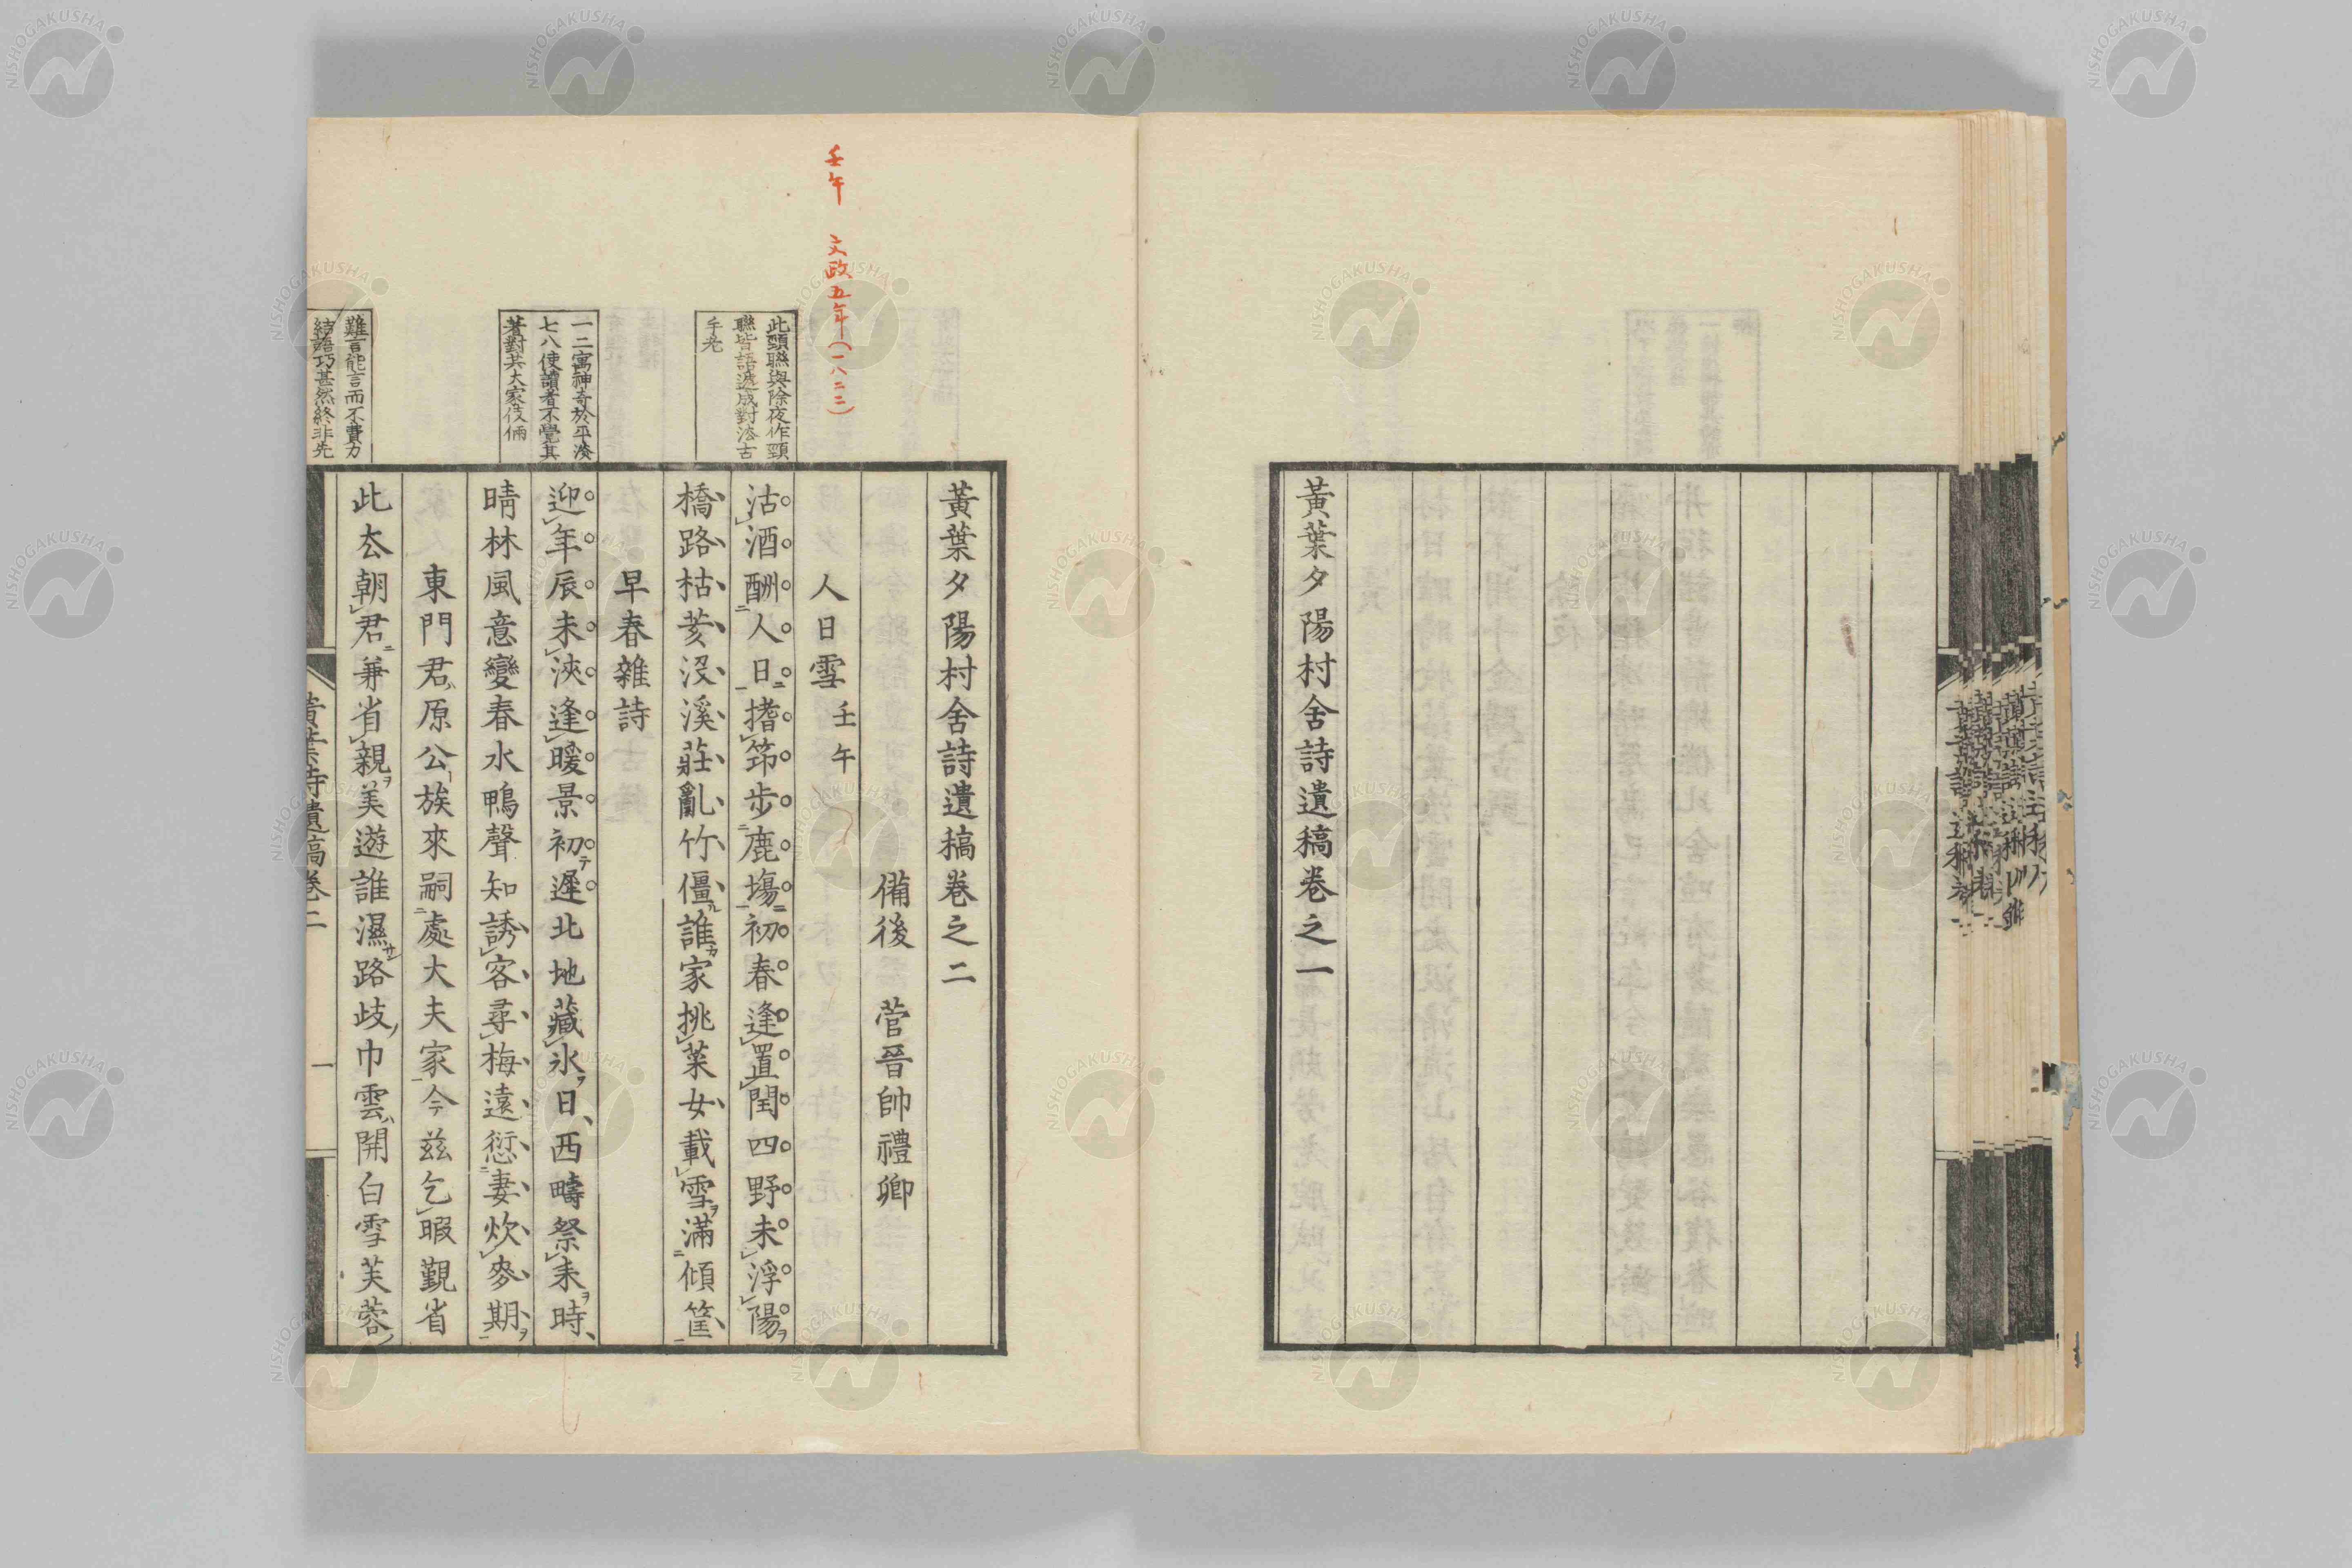 黃葉夕陽村舍詩遺稿卷之一
壬午 文政五年(一八二二)
此頸聯與除夜作頸
聯皆語遞成對
一二寓神奇於平淡
七八使讀者不覺其
著對共大家伎倆
難言能言而不費力
結語巧甚然終非先
黃葉夕陽村舍詩遺稿卷之二
備後 菅晉帥禮卿
人日雪 壬午
沽酒酬人日㨋笻步鹿塲初春逢置閏四野未浮陽
橋路枯荄沒溪莊亂竹僵誰家挑菜女載雪滿傾筐
早春雜詩
迎年辰未浹逢暖景初遲北地藏氷日西疇祭耒時
晴林風意變春水鴨聲知誘客尋梅遠愆妻炊麥期
東門君原公族來嗣處大夫家今茲乞暇覲省
此厺朝君兼省親美遊誰濕路歧巾雲開白雪芙蓉
黃葉詩遺稿卷二
一
NISHOGAKUSHA